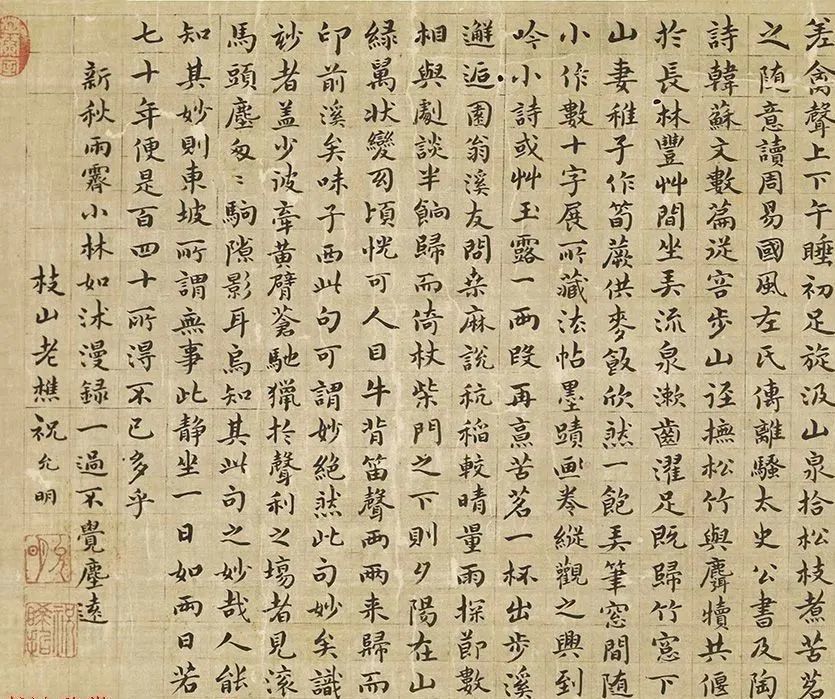 差禽聲上下午睡初足旋汲山泉拾松枝煮苦茗
之随意讀周易國風左氏傳離騷太史公書及陶
詩韓蘇文數篇從容步山迳撫松竹與麛犢共偃
於長林豐艸間坐弄流泉漱齒濯足既歸竹窻下
山妻稚子作筍蕨供麥飯欣然一飽弄筆窓間随
小作數十字展所藏法帖墨蹟画卷縱觀之興到
吟小詩或艸玉露一兩段再烹苦茗一杯出步溪
邂逅園翁溪友問桒麻說秔稻較晴量雨探節數
相與劇談半餉歸而倚杖柴門之下則夕陽在山
緑萬状變幻頃恍可人目牛背笛聲兩兩来歸而
印前溪矣味子西此句可謂妙絶然此句妙矣識
玅者盖少彼牽黄臂蒼馳獵於聲利之場者見滚
馬頭塵匆〻駒隙影耳烏知其此句之妙哉人能
知其妙則東坡所謂無事此静坐一日如兩日若
七十年便是百四十所得不已多乎
新秋雨霽小林如沐漫録一過不覺塵遠
枝山老樵祝允明
允明